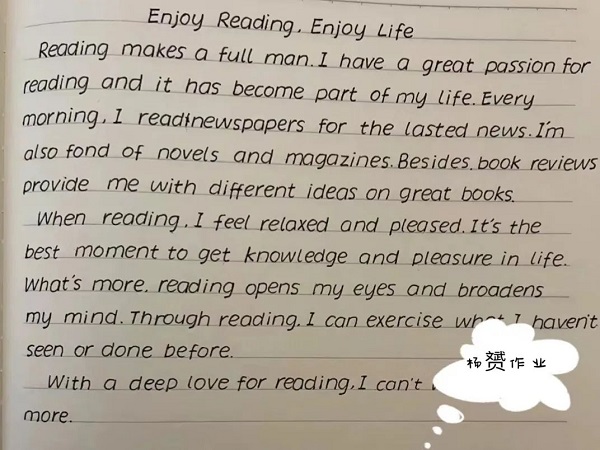 Enjoy Reading, Enjoy Life
Reading makes a full man. I have a great passion for
reading and it has become part of my life. Every
morning, I read newspapers for the lasted news. I'm
also fond of novels and magazines. Besides, book reviews
provide me with different ideas on great books.
When reading, I feel relaxed and pleased. It's the
best moment to get knowledge and pleasure in life.
What's more, reading opens my eyes and broadens
my mind. Through reading, I can exercise what I haven't
seen or done before.
杨赟作业
With a deep love for reading, I can't
more.